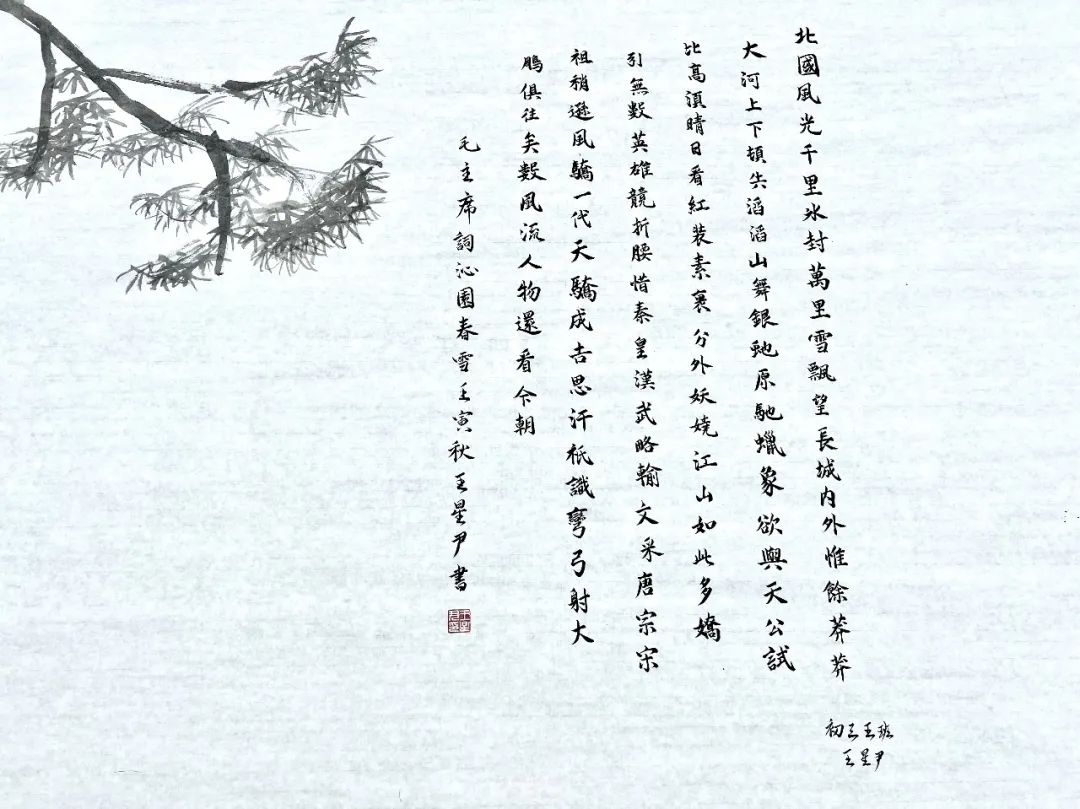 北國風光千里氷封萬里雪飄望長城内外惟餘莽莽
大河上下頓失滔滔山舞銀虵原馳蠟象欲與天公試
比高湏晴日看紅裝素裹分外妖嬈江山如此多嬌
引無数英雄競折腰惜秦皇漢武略輸文采唐宗宋
祖稍遜風騷一代天驕成吉思汗衹識彎弓射大
鵰俱往矣数風流人物還看今朝
毛主席詞沁園春雪壬寅秋王星尹書
初三王班
王星尹